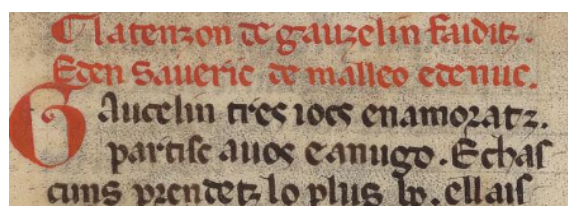 Clatenzon de gauzelin faiditz.
Eden Saueric de malleo edenuc.
Gaucelin tres iocs enamoratz.
partisc auos eanugo. Echas
cuns prendetz lo plus bo. ellais